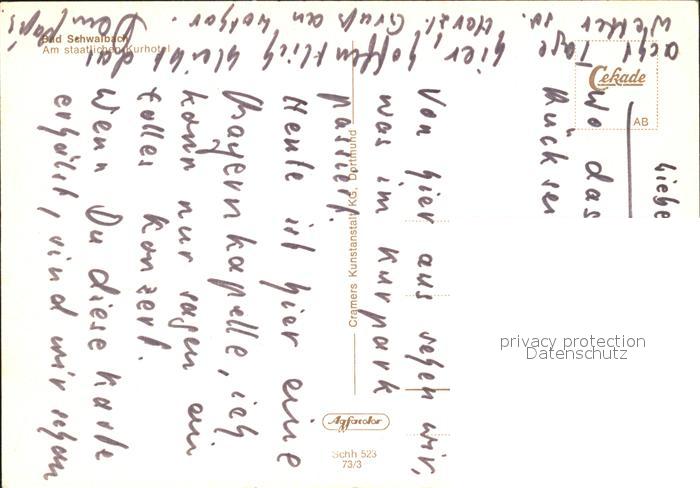 Bad Schwalbach
Am staatlichen Kurhotel
Cekade
AB
Cramers Kunstanstalt KG, Dortmund
Agfacolor
Schh 523
73/3
privacy protection
Datenschutz
Liebe
Wo das
Rücksei
Von hier aus sehen wir,
was im Kurpark
passiert.
Heute ist hier eine
Bayernkapelle, ich
kann nur sagen ein
tolles Konzert.
Wenn Du diese Karte
erhälst, sind wir schon
acht Tage hier, hoffentlich bleibt das
Wetter so. Herzl. Gruß an